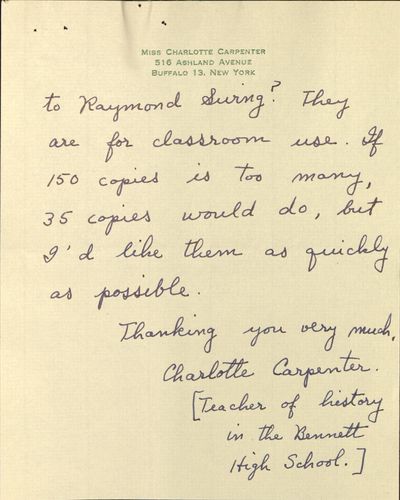 MISS CHARLOTTE CARPENTER
516 ASHLAND AVENUE
BUFFALO 13, NEW YORK
to Raymond Swing? They
are for classroom use. If
150 copies is too many,
35 copies would do, but
I'd like them as quickly
as possible.
Thanking you very much,
Charlotte Carpenter.
[Teacher of history
in the Bennett
High School.]